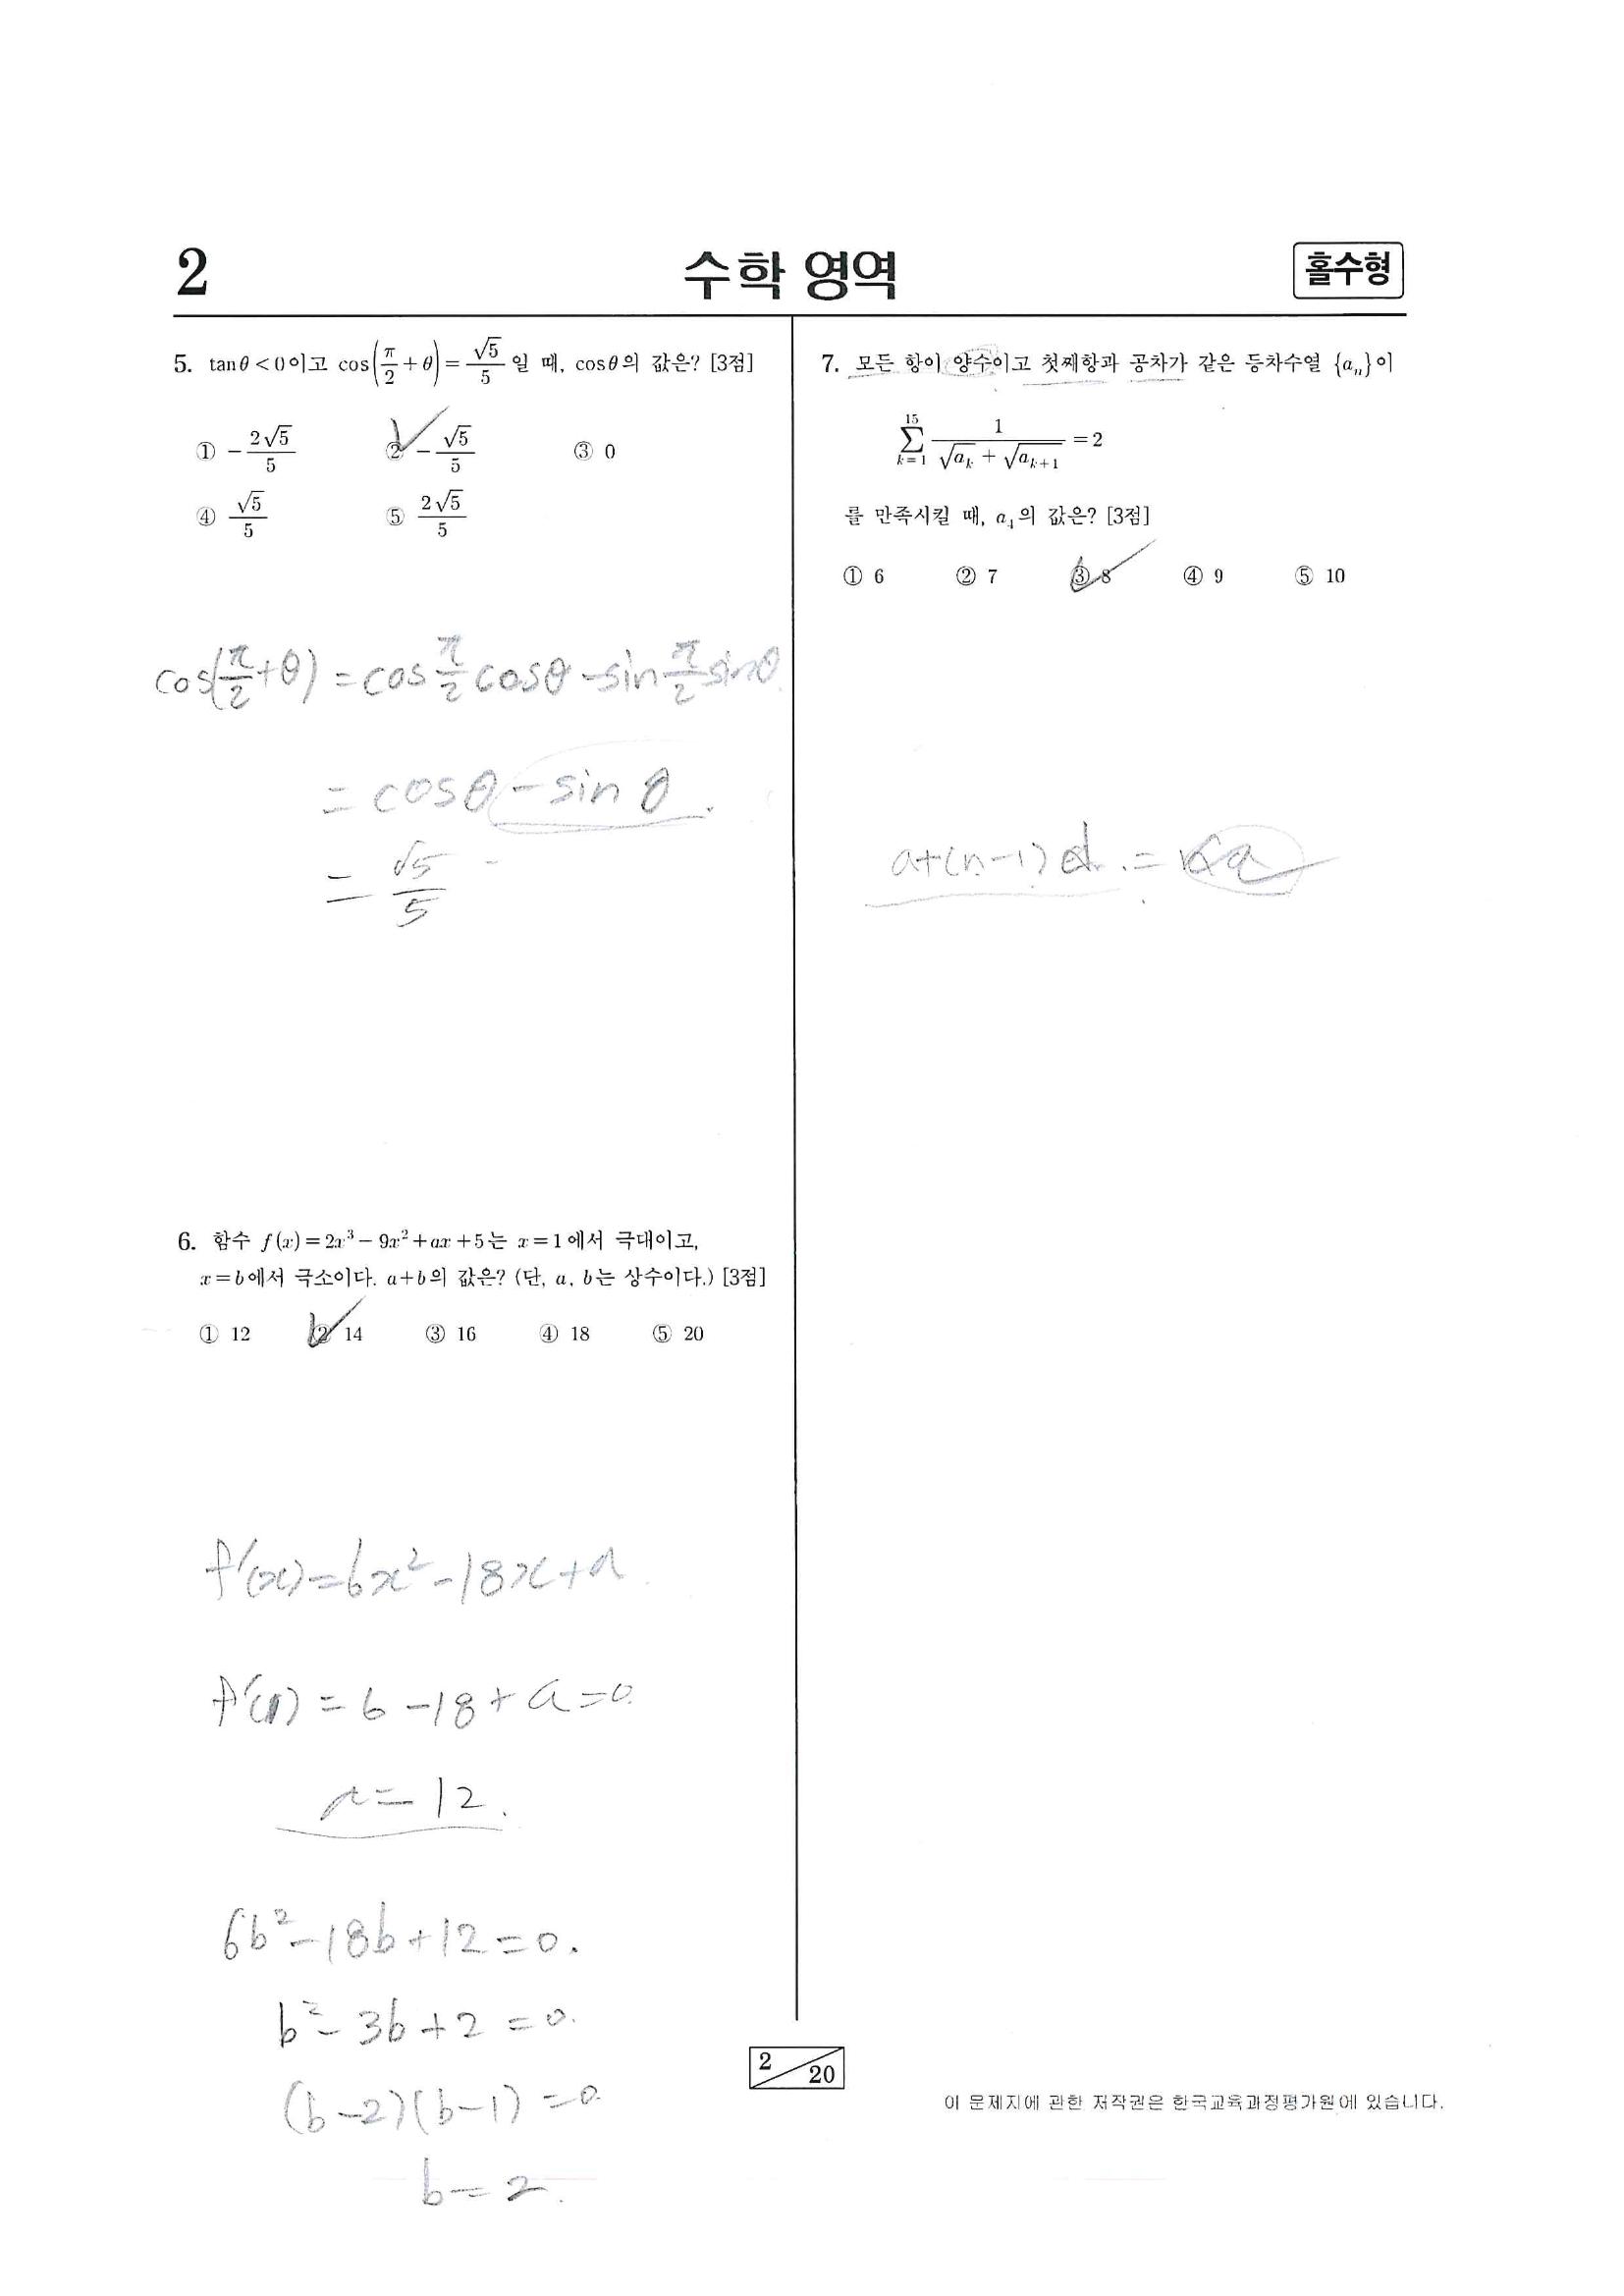 2
수학 영역
홀수형
5. tanθ<0이고 cos(π/2+θ)=√5/5일 때, cosθ의 값은? [3점]
① -2√5/5 ② -√5/5 ③ 0
④ √5/5 ⑤ 2√5/5
cos(π/2+θ) = cos π/2 cosθ - sin π/2 sinθ
= cosθ - sin θ.
= √5/5
6. 함수 f(x)=2x³-9x²+ax+5는 x=1에서 극대이고,
x=b에서 극소이다. a+b의 값은? (단, a, b는 상수이다.) [3점]
① 12 ② 14 ③ 16 ④ 18 ⑤ 20
f'(x)=6x²-18x+a
f'(1)=6-18+a=0
a=12.
6b²-18b+12=0.
b²-3b+2=0.
(b-2)(b-1)=0
b=2.
7. 모든 항이 양수이고 첫째항과 공차가 같은 등차수열 {aₙ}이
15 ∑ k=1 1/(√aₖ + √aₖ₊₁) = 2
를 만족시킬 때, a₄의 값은? [3점]
① 6 ② 7 ③ 8 ④ 9 ⑤ 10
a+(n-1)d =
2/20
이 문제지에 관한 저작권은 한국교육과정평가원에 있습니다.